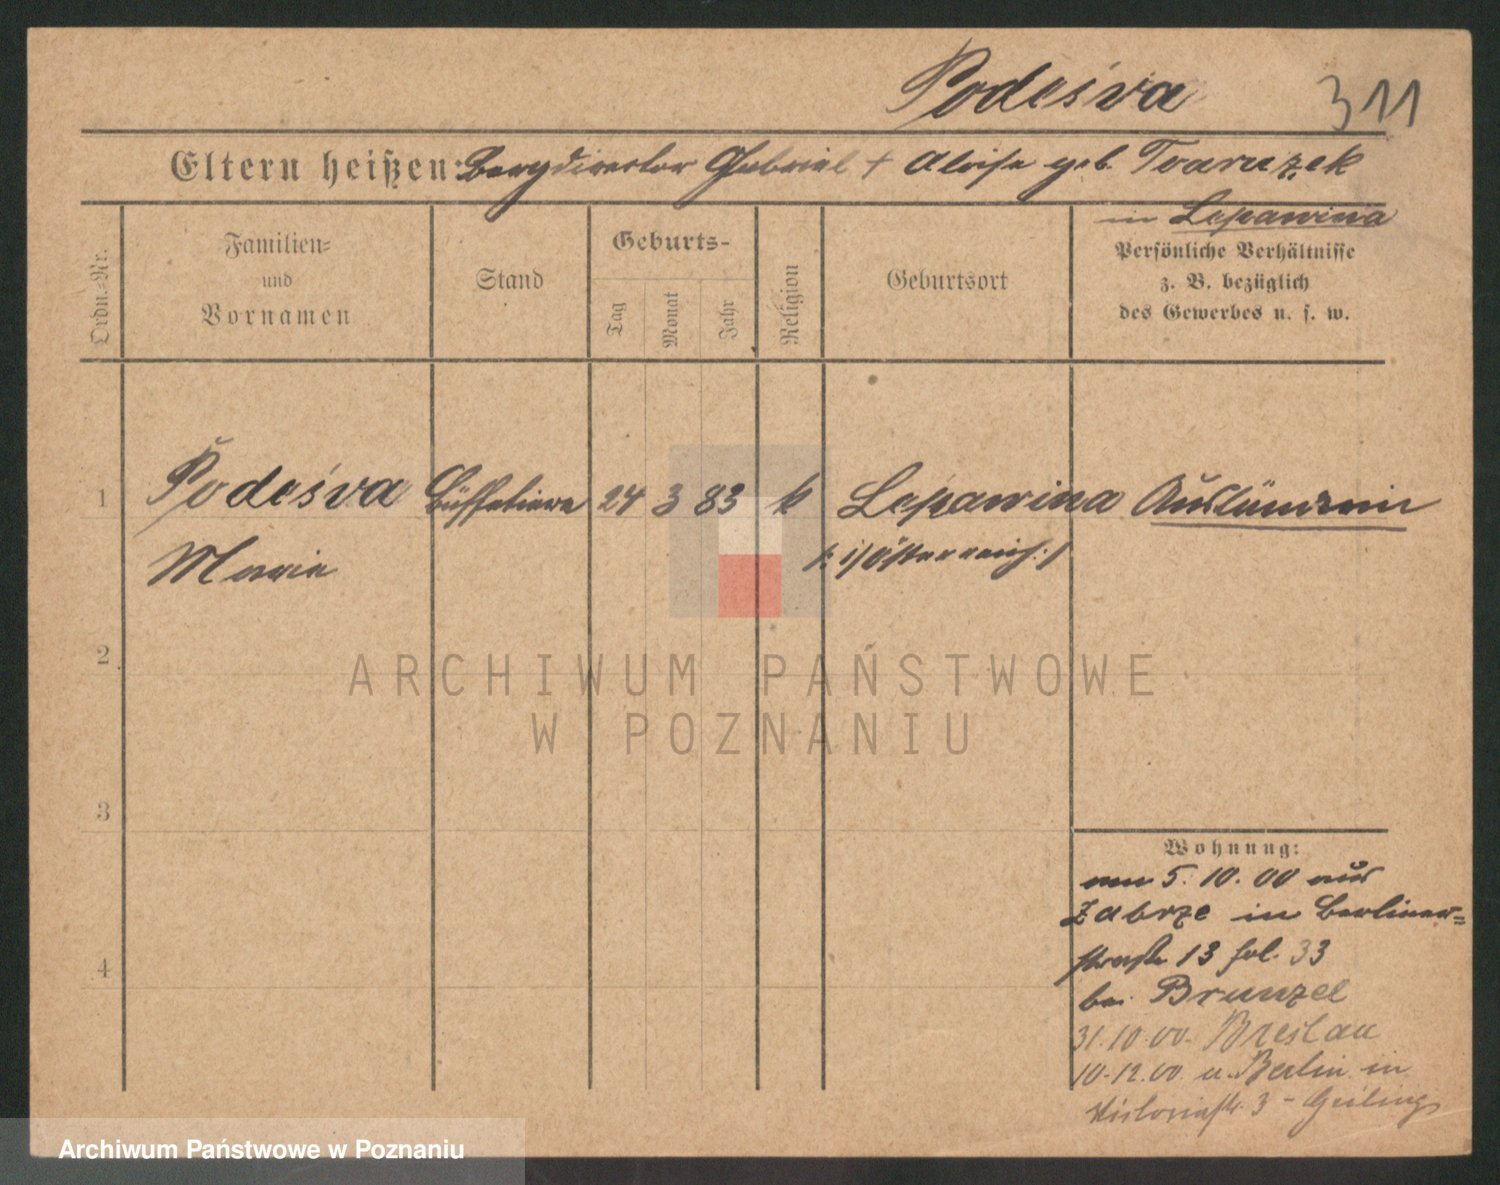 Podeśva
311
Eltern heißen: Bergdirector Gabriel + Aloise geb. Tvaružek
in Lepawina
Ordn.-Nr.
Familien-
und
Vornamen
Stand
Geburts-
Tag
Monat
Jahr
Religion
Geburtsort
Persönliche Verhältnisse
z. B. bezüglich
des Gewerbes u. s. w.
1 Podeśva Büffetiere 24 3 83 k Lepawina Ausländerin
Marie /: i/Österreich :/
2
3
4
Wohnung:
am 5. 10. 00 aus
Zabrze in Berliner-
straße 13 fol. 33
bei Brunzel
31.10.00. Breslau
10.12.00 v. Berlin in
Victoriastr. 3 -
ARCHIWUM PAŃSTWOWE
W POZNANIU
Archiwum Państwowe w Poznaniu